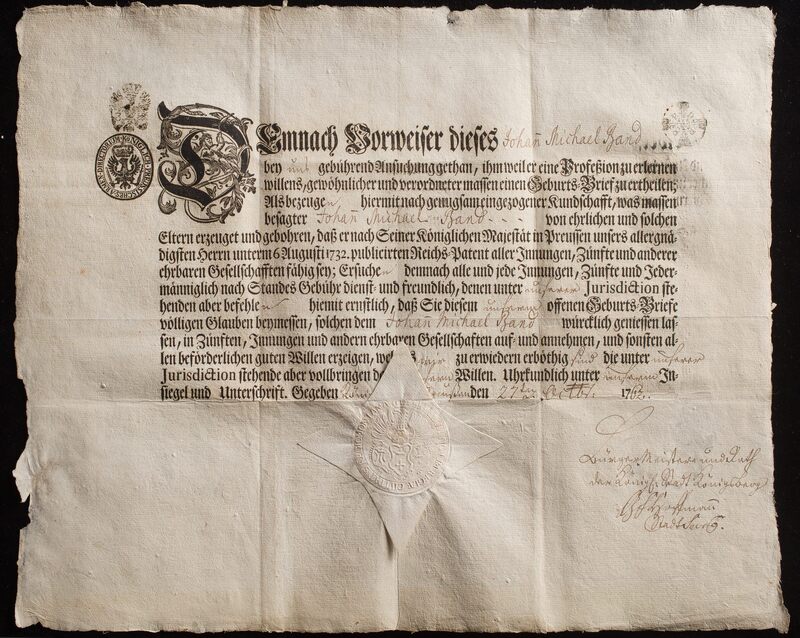 DEmnach Vorweiser dieses Johan̄ Michael Band
bey uns gebührend Ansuchung gethan, ihm weil er eine Profeßion zu erlernen
willens, gewöhnlicher und verordneter massen einen Geburts-Brief zu ertheilen;
Als bezeugen hiermit nach genugsam eingezogener Kundschafft, was massen
besagter Johan̄ Michael Band - - - von ehrlichen und solchen
Eltern erzeuget und gebohren, daß er nach Seiner Königlichen Majestät in Preussen unsers allergnä-
digsten Herrn unterm 6 Augusti 1732. publicirten Reichs-Patent aller Innungen, Zünfte und anderer
ehrbaren Gesellschafften fähig sey; Ersuchen demnach alle und jede Innungen, Zünfte und Jeder-
männiglich nach Standes Gebühr dienst- und freundlich, denen unter unserer Jurisdiction ste-
henden aber befehlen hiemit ernstlich, daß Sie diesem unserm offenen Geburts-Briefe
völligen Glauben beymessen, solchen dem Johan̄ Michael Band würcklich geniessen las-
sen, in Zünften, Innungen und andern ehrbaren Gesellschaften auf- und annehmen, und sonsten al-
len beförderlichen guten Willen erzeigen, wir zu erwiedern erböthig sind die unter unserer
Jurisdiction stehende aber vollbringen Willen. Uhrkundlich unter unserem In-
siegel und Unterschrift. Gegeben den 27ten Octbr. 1762.
Bürger Meister und Rath
der Königl. Stadt Königsberg
Hoffmann
Stadt Secr.